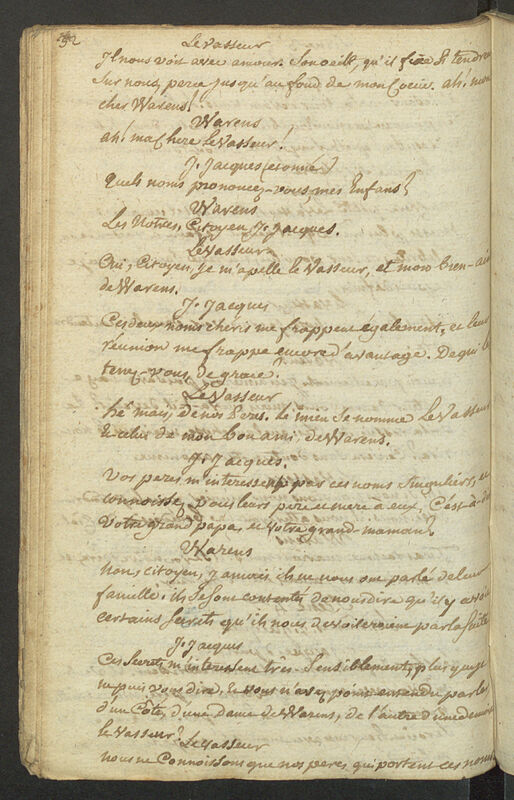 52
Levasseur
Il nous voit avec amour. Son oeil, qu'il fixe si tendrem
sur nous, perce jusqu'au fond de mon Coeur. ah! mon
cher Warens!
Warens
ah! ma Chere Levasseur!
J. Jacques (etonné)
Quels noms prononcez-vous, mes Enfans?
Warens
Les Notres, Citoyen J. Jacques.
Levasseur
Oui, Citoyen, Je m'apelle le Vasseur, et mon bien-aim
de Warens.
J. Jacques
Ces deux noms chéris me frappent également, et leur
réunion me frappe encore d'avantage. De qui les
tenez-vous, de grace.
Levasseur
hé mais, de nos Peres. le mien se nomme Levasseur
Et celui de mon bon ami, de Warens.
J. Jacques.
Vos peres m'interessent par ces noms singuliers, en
connoissez pour leurs pere et mere à eux, C'est-à-dire
Votre grand papa, et votre grand-maman?
Warens
Non, citoyen, jamais ils ne nous ont parlé de leur
famille. ils se sont contentés de nous dire qu'il y avoit
certains secrets qu'ils nous devoileroient par la suite
J. Jacques
Ces secrets m'interessent très sensiblement, plus que je
ne puis vous dire. Et vous n'avez point entendu parler
d'un Côté, d'une Dame de Warens, de l'autre d'une demoise
le Vasseur?
Levasseur
nous ne Connoissons que nos peres qui portent ces noms